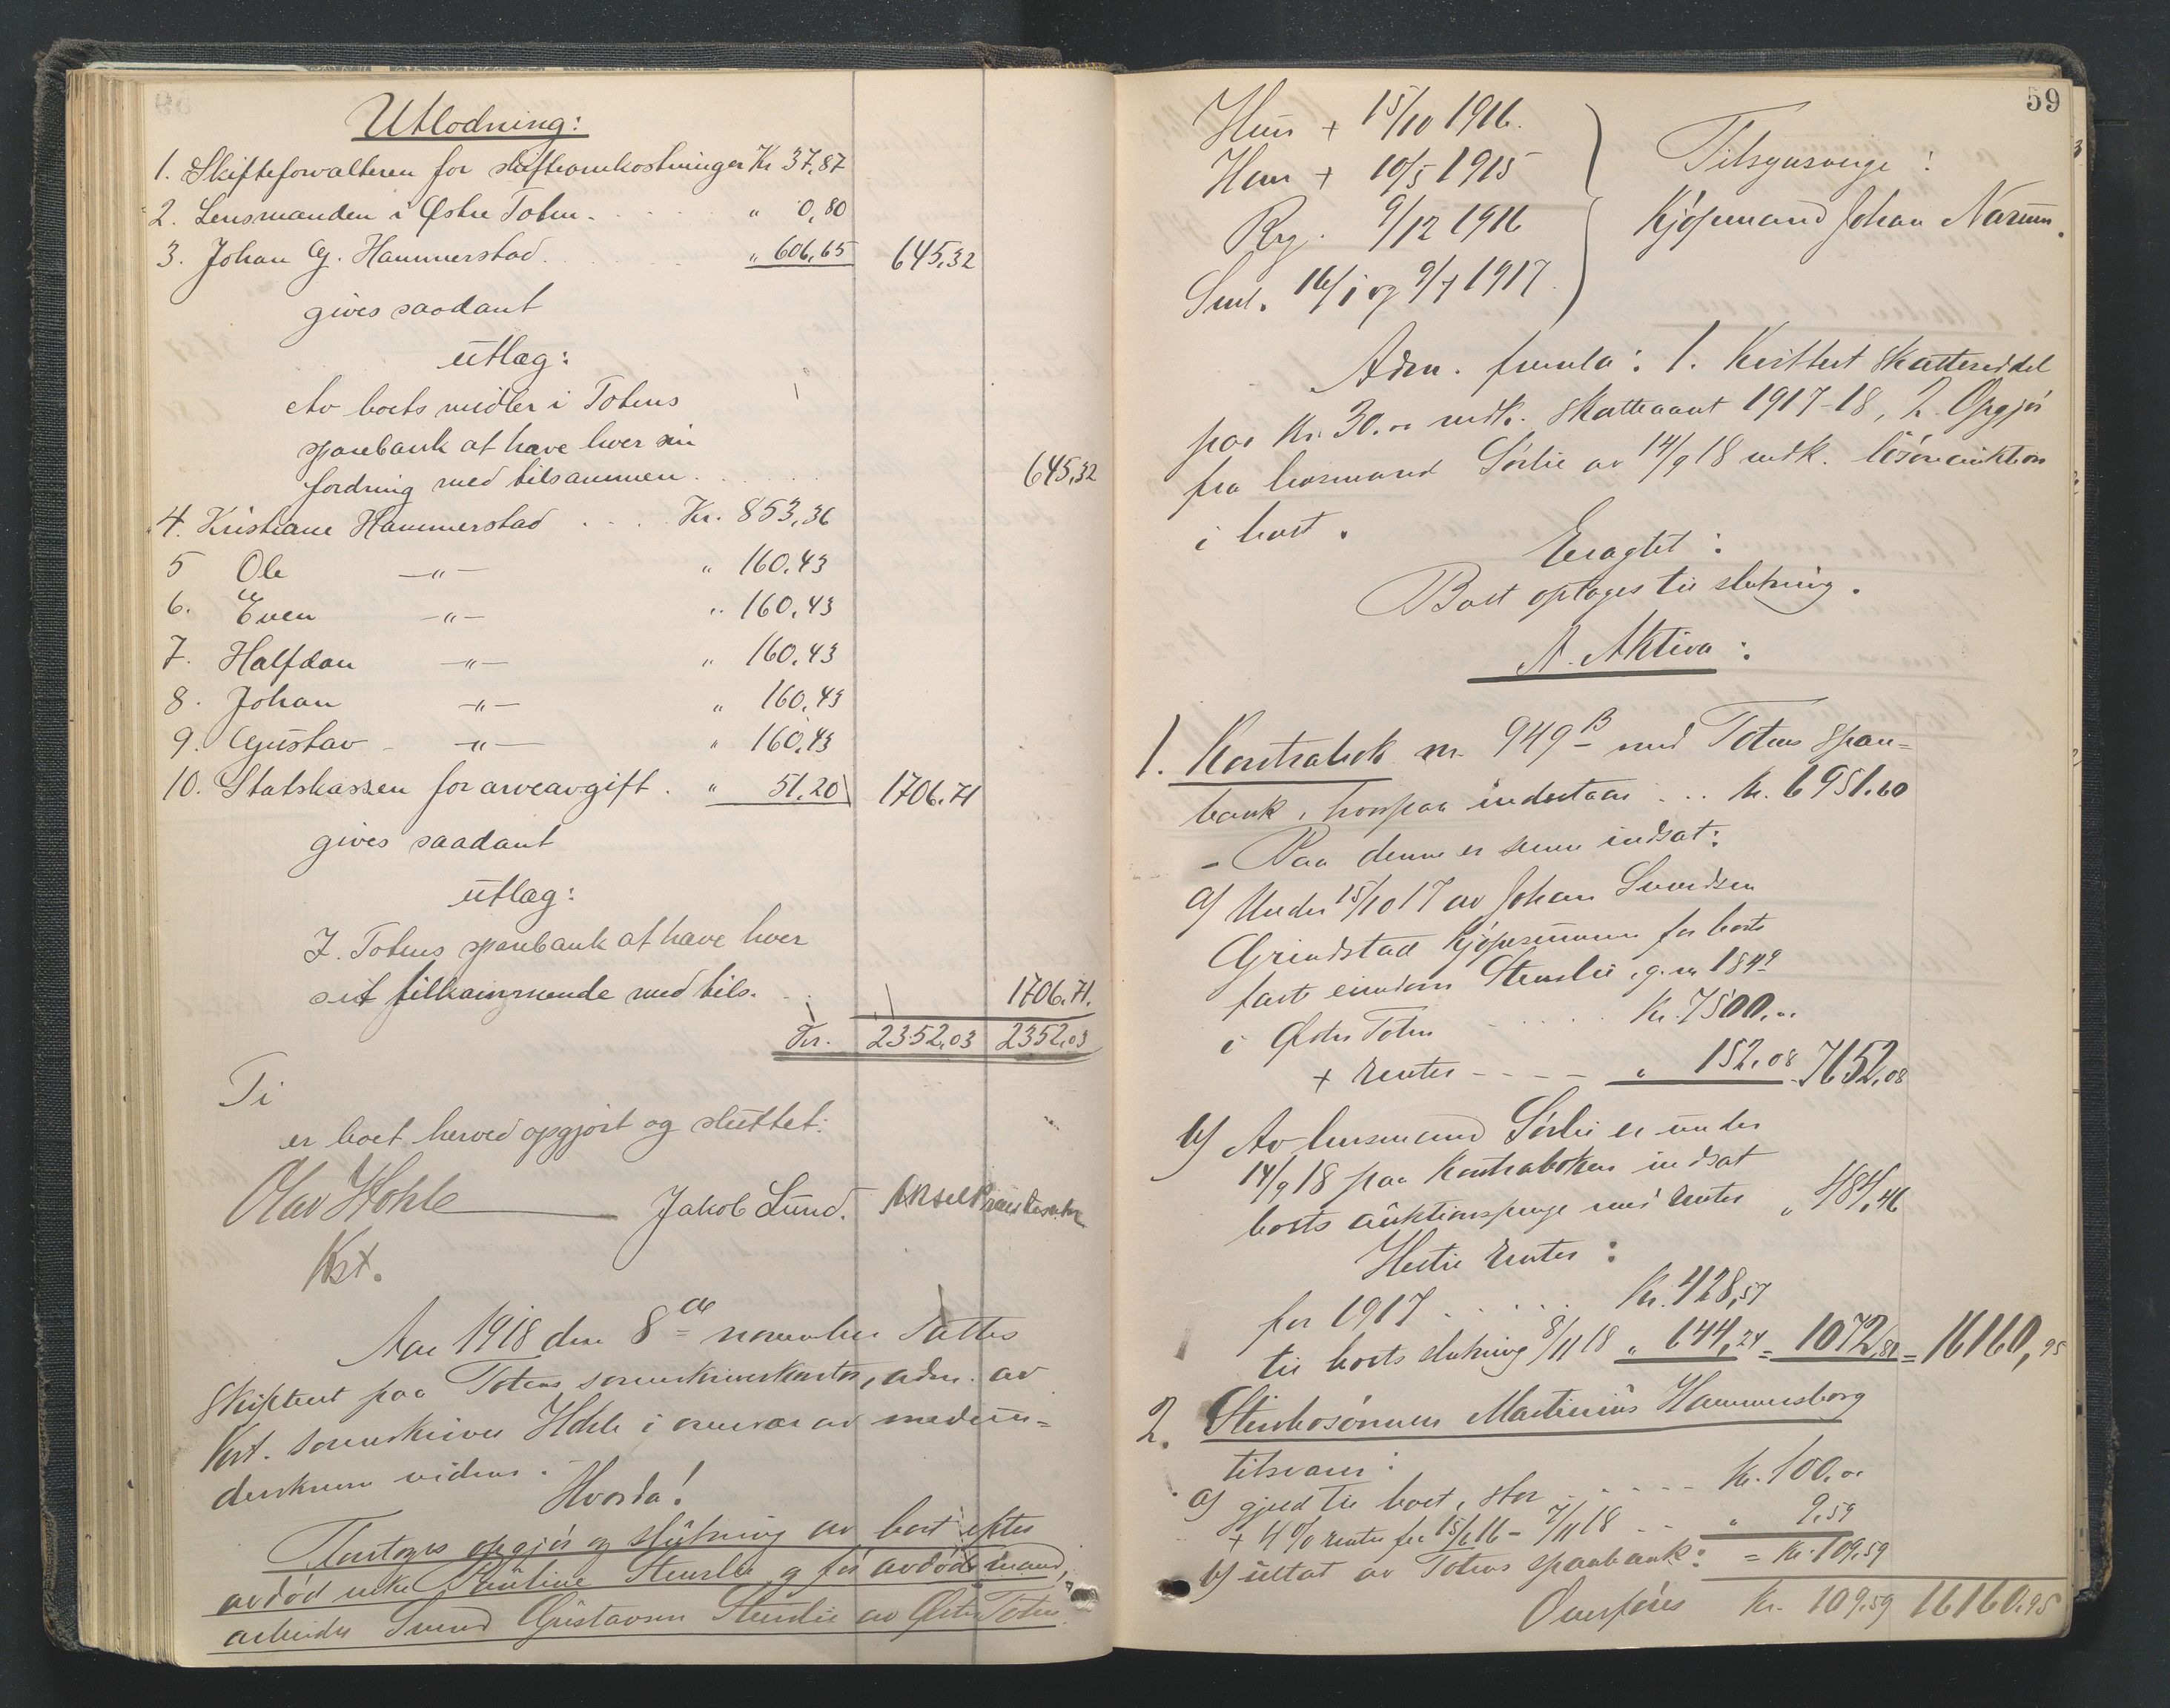 Utlodning:
1. Skifteforvalteren for skifteomkostninger Kr 37,87
2. Lensmanden i Østre Toten. " 0,80
3. Johan G. Hammerstad. " 606,65 645,32
gives saadant
utlæg:
Av boets midler i Totens
sparebank at have hver sin
fordring med tilsammen. 645,32
4. Kristiane Hammerstad Kr. 853,36
5 Ole —"— " 160,43
6. Even —"— " 160,43
7. Halfdan —"— " 160,43
8. Johan —"— " 160,43
9. Gustav —"— " 160,43
10. Statskassen for arveavgift. " 51,20 1706,71
gives saadant
utlæg:
I. Totens sparebank at have hver
sit tilkommende med tils. 1706,71.
Kr. 2352,03 2352,03
Ti
er boet herved opgjort og sluttet:
Olav Hohle Jakob Lund.
Kst.
Aar 1918 den 8de november sattes
skifteret paa Totens sorenskriverkontor, adm. av
Kst. sorenskriver Hohle i overvær av medun-
derskrevne vidner.
Hvorda!
Foretoges opgjør og slutning av boet efter
avdød enke Pauline Stenslie og før avdøde mand,
arbeider Svend Gustavsen Stenslie av Østre Toten.
59
Hun + 15/10 1916.
Han + 10/5 1915
Reg. 9/12 1916
Saml. 16/1 og 9/7 1917.
Tilsynsverge:
Kjøpmand Johan Narum.
Adm. fremla: 1. Kvittert skatteseddel
paa Kr. 30.00 mdk. skatteaaret 1917-18, 2. Opgjør
fra lensmand Sørlie av 14/9 18 mdk. løsøreauktion
i boet.
Eragtet:
Boet optages til slutning.
A. Aktiva:
1. Kontrabok nr. 949 B med Totens spare-
bank, hvorpaa indestaar ... Kr. 6951.60
- Paa denne er senere indsat:
a) Under 15/10 17 av Johan Svendsen
Grindstad kjøpesummen for boets
faste eiendom Stenslie, g. nr 184 9
i Østre Toten Kr. 7500,00
+ renter - - - - " 152,08 7652,08
b) Av lensmand Sørlie er under
14/9 18 paa kontraboken indsat
boets auktionspenge med renter " 484,46
Hertil renter:
for 1917 Kr. 428,57
til boets slutning 8/11 18 " 644,24 = 1072,81 = 16160,95
2. Sterbosønnen Martinius Hammersborg
tilsvarer:
a) gjæld til boet, stor Kr. 100,00
+ 4% renter fra 15/6 16 - 7/11 18 " 9,59
b) uttat av Totens sparebank: = Kr. 109,59
Overføres Kr. 109,59 16160,95